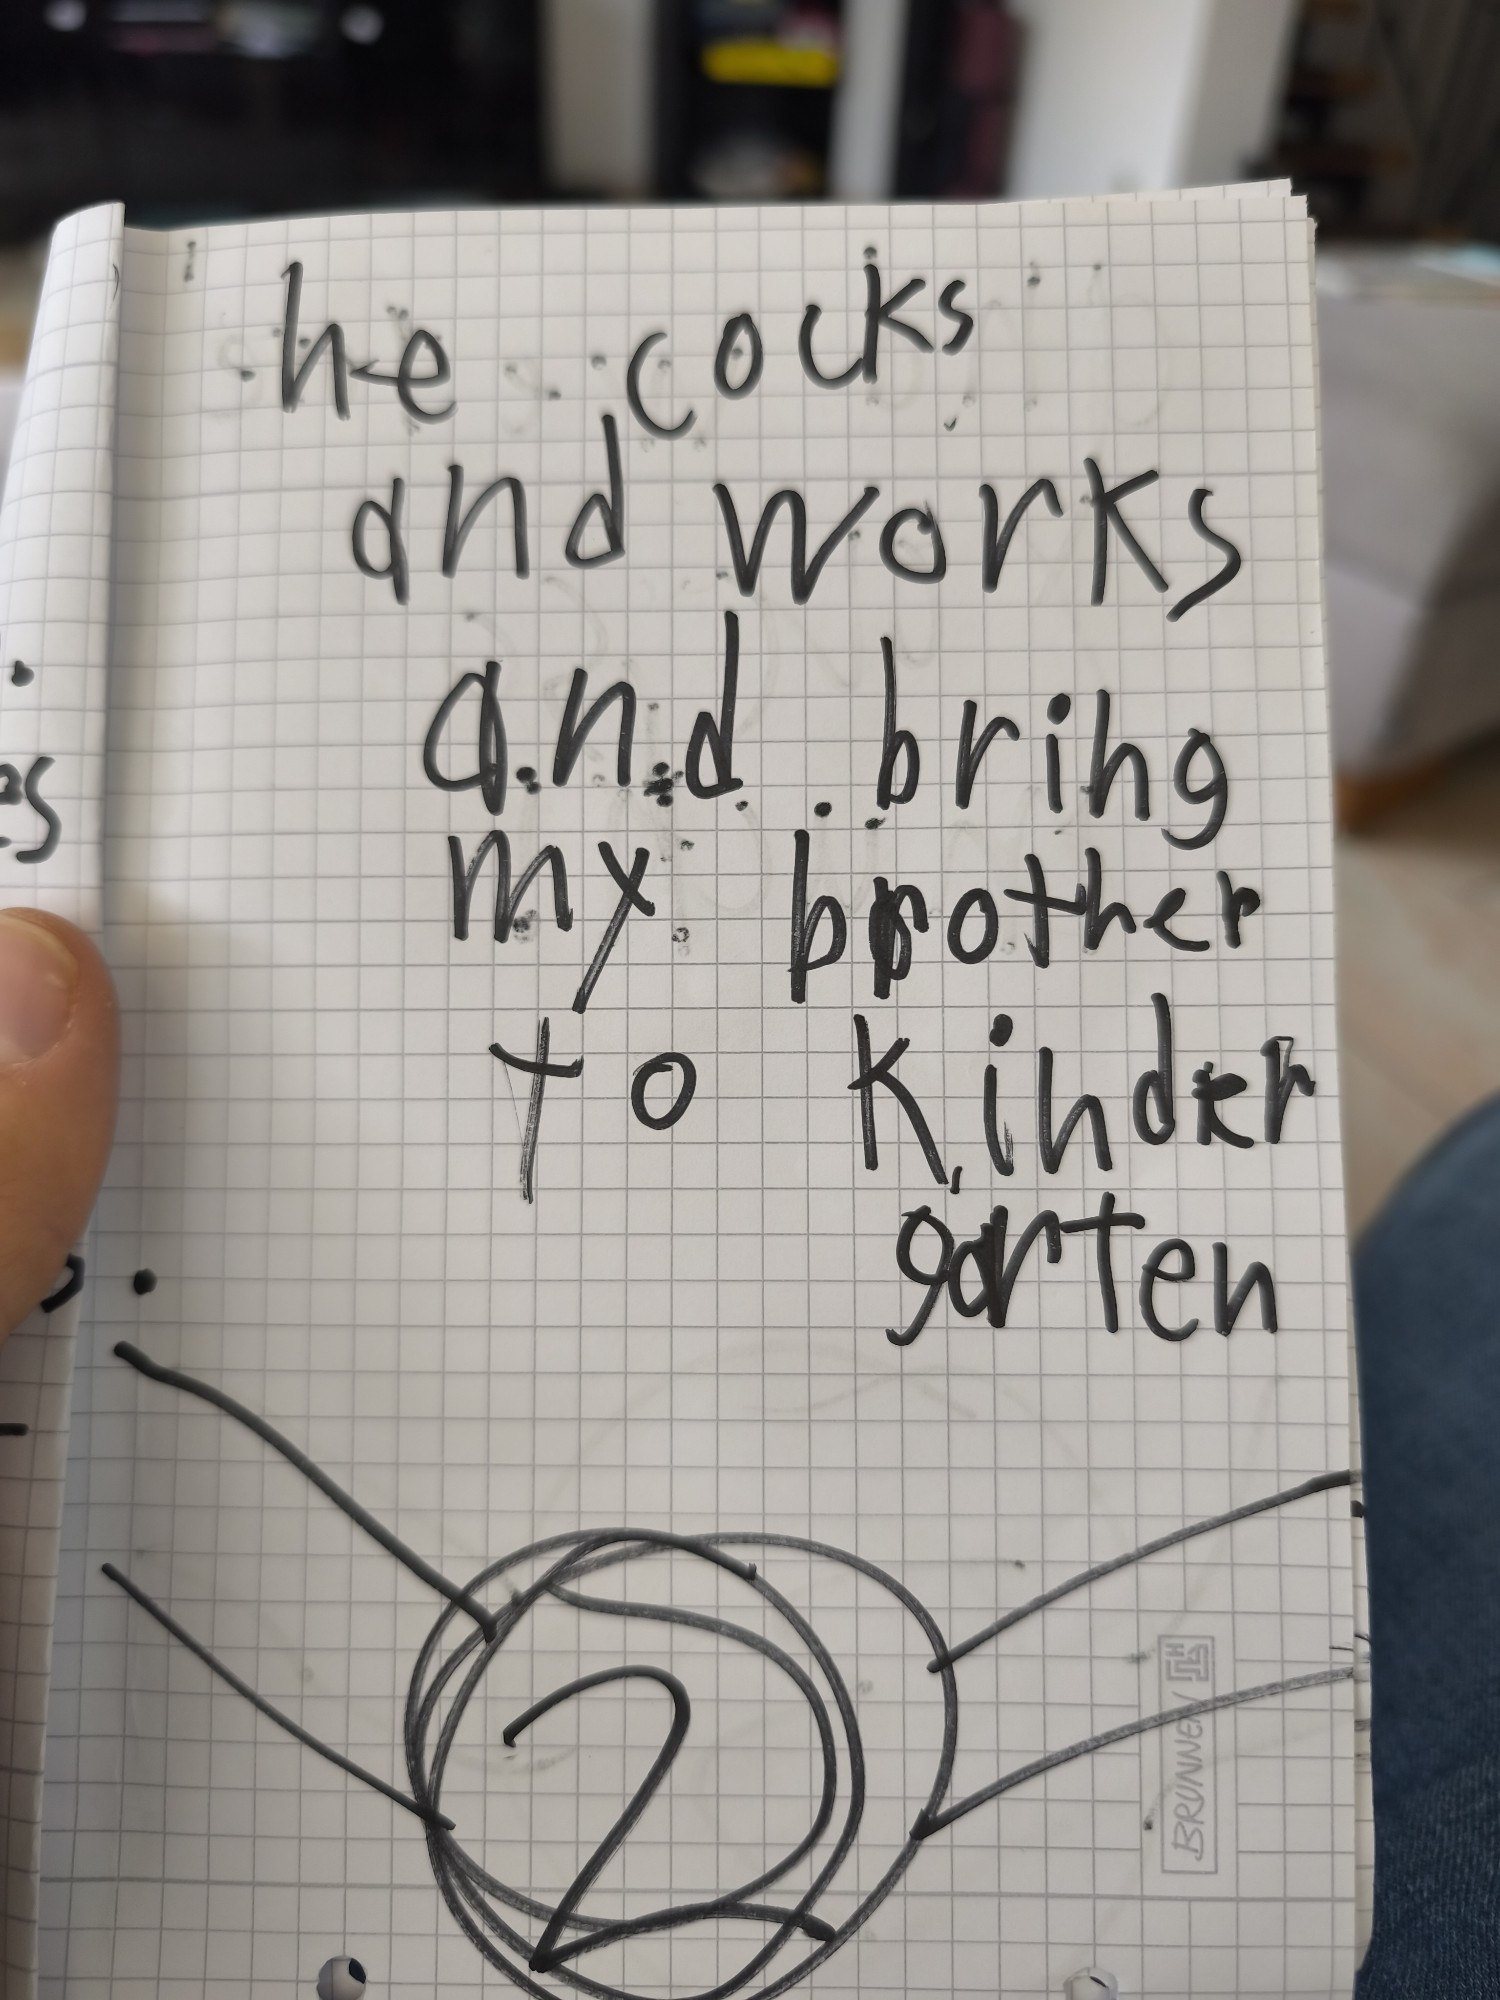 he cocks
and works
and bring
my brother
to kinder
garten
2
BRUNNEN